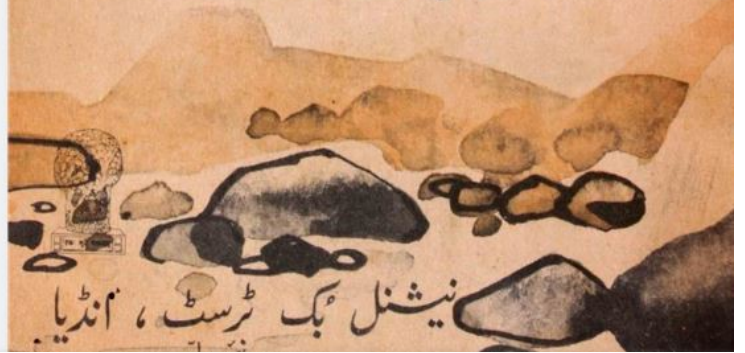 نیشنل بُک ٹرسٹ ، انڈیا